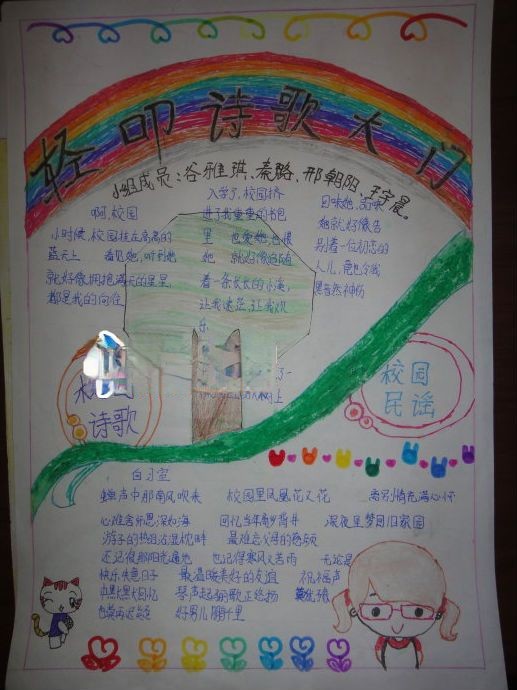 轻叩诗歌大门
小组成员:谷雅琪、秦璐、邢朝阳、王宇晨。
啊,校园
小时候,校园挂在高高的
蓝天上 看见她,听到她
就好像拥抱满天的星星
都是我的向往
入学了,校园挤
进了我重重的书包
里 也爱她,也恨
她 就好像
着一条长长的小溪,
让我迷茫,让我欢
乐
了
树上
回味她
她就好像告
别着一位初恋的
人儿,竟也令我
黯然神伤
校园
诗歌
校园
民谣
自习室
蝉声中那南风吹来 校园里凤凰花又花 离别情充满心怀
心难舍师恩深如海 回忆当年离乡背井 深夜里梦回旧家园
游子的热泪沾湿枕畔 最难忘父母的
还记得那阳光遍地 也记得寒风又苦雨 无论是
快乐失意日子 最温暖美好的友谊 祝福声
回忆 琴声起骊歌正悠扬
好男儿 千里